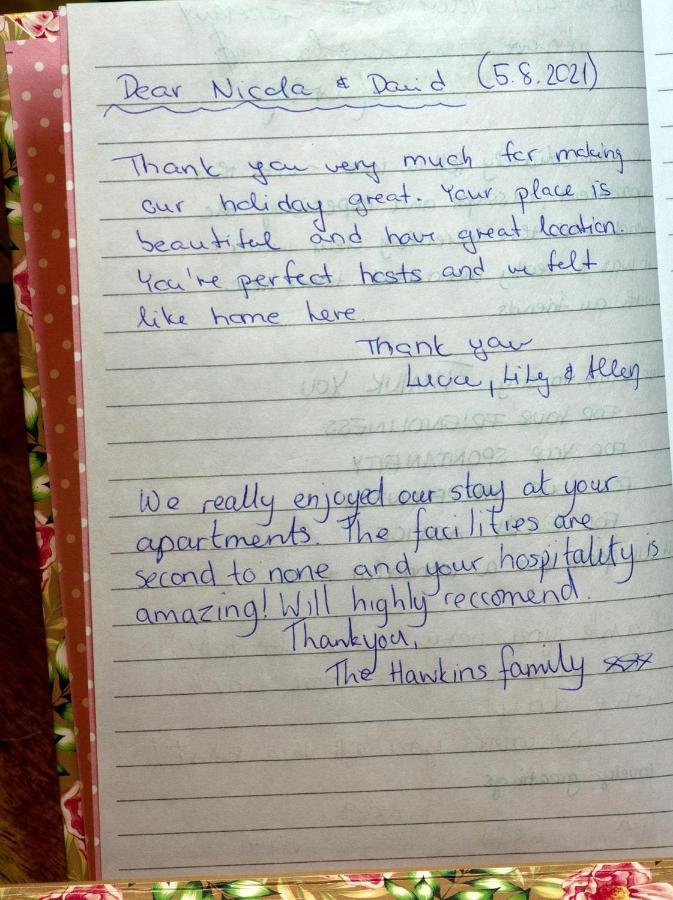 Dear Nicola & David (5.8.2021)
Thank you very much for making
our holiday great. Your place is
beautiful and have great location.
You're perfect hosts and we felt
like home here.
Thank you
Lucia, Lily & Allen
We really enjoyed our stay at your
apartments. The facilities are
second to none and your hospitality is
amazing! Will highly reccomend.
Thankyou,
The Hawkins family xxx